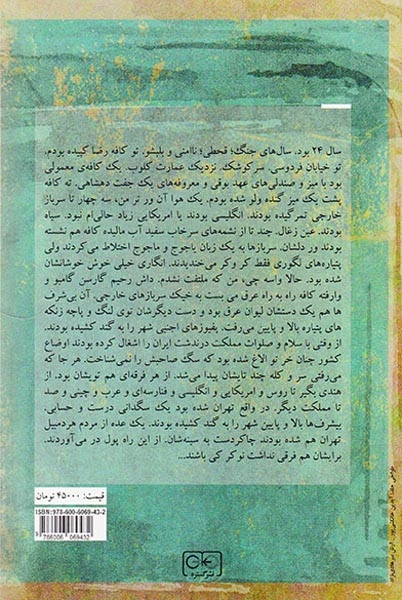 سال ۲۴ بود. سال‌های جنگ؛ قحطی؛ ناامنی و بلبشو. تو کافه رضا کپیده بودم.
تو خیابان فردوسی. سرکوشک. نزدیک عمارت کلوب. یک کافه‌ی معمولی
بود با میز و صندلی‌های عهد بوقی و معروفه‌های یک جفت دهشاهی. ته کافه
پشت یک میز گنده ولو شده بودم. یک هوا آن ور تر من، سه چهار تا سرباز
خارجی تمرگیده بودند. انگلیسی بودند یا امریکایی زیاد حالی‌ام نبود. سیاه
بودند. عین زغال. چند تا از نشمه‌های سرخاب سفید آب مالیده کافه هم نشسته
بودند ور دلشان. سربازها به یک زبان یاجوج و ماجوج اختلاط می‌کردند ولی
پتیاره‌های لگوری فقط کر و کر می‌خندیدند. انگاری خیلی خوش خوشانشان
شده بود. حالا واسه چی، من که ملتفت نشدم. داش رحیم گارسن گامبو و
وارفته کافه راه به راه عرق می بست به خیک سربازهای خارجی. آن بی‌شرف
ها هم یک دستشان لیوان عرق بود و دست دیگرشان توی لنگ و پاچه زنکه
های پتیاره بالا و پایین می‌رفت. پفیوزهای اجنبی شهر را به گند کشیده بودند.
از وقتی با سلام و صلوات مملکت درندشت ایران را اشغال کرده بودند اوضاع
کشور چنان خر تو الاغ شده بود که سگ صاحبش را نمی‌شناخت. هر جا که
می‌رفتی سر و کله چند تایشان پیدا می‌شد. از هر فرقه‌ای هم تویشان بود. از
هندی بگیر تا روس و امریکایی و انگلیسی و فنارسه‌ای و عرب و چینی و صد
تا مملکت دیگر. در واقع تهران شده بود یک سگدانی درست و حسابی.
بیشرف‌ها بالا و پایین شهر را به گند کشیده بودند. یک عده از مردم هردمبیل
تهران هم شده بودند جاکردست به سینه‌شان. از این راه پول در می‌آوردند.
برایشان هم فرقی نداشت نوکر کی باشند...
قیمت: ۴۵۰۰۰ تومان
ISBN: 978-600-6069-43-2
9 786006 069432
نشر گستره